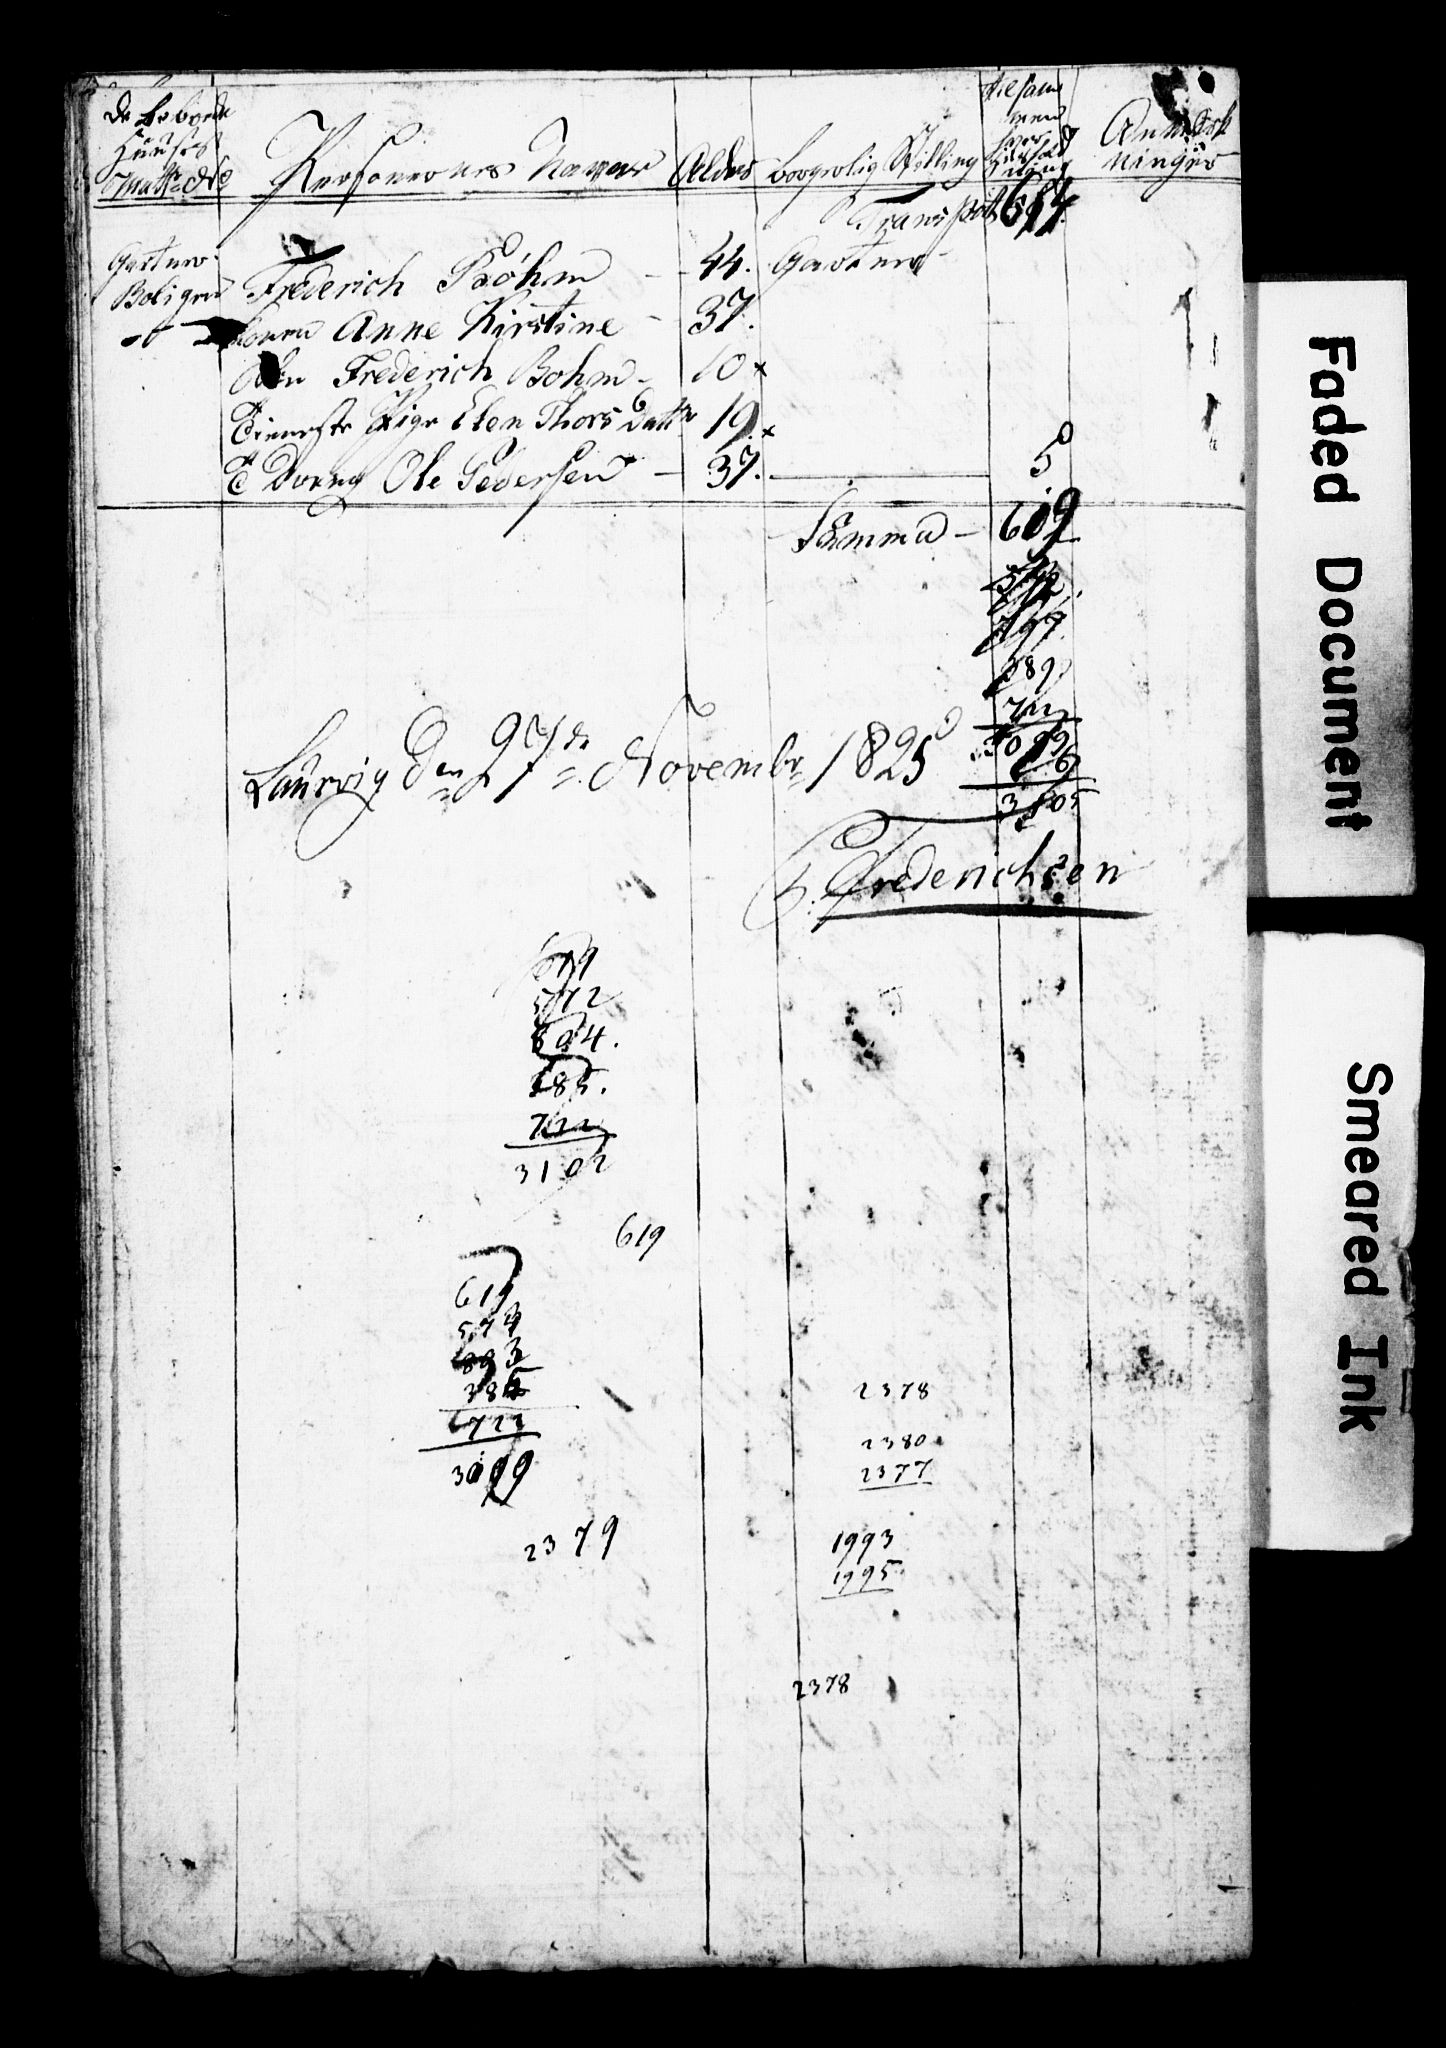 De beboede
Huuses
Matr: No
Personernes Navne
Alder
borgerlig Stilling
Tilsam
men
hver
Huus
Anmærk
ninger
Transport 614.
Gartner
Boligen
Frederich Bóhm - 44. Gartner
-o- Konen Anne Kirstine - 37.
Søn Frederich Bohm - 10 x
Tieneste Pige Elen Thors Datter 19. x
T Dreng Ole Pedersen - 37. 5
Summa - 619
572
797
389
722
3099
6
3105
Laurvig Den 27de Novembr 1825
Frederichsen
619
572
804.
385.
722
3102
619
619
573
803
385
722
3099
2379
2378
2380
2377
1993
1995
2378
Faded Document
Smeared Ink